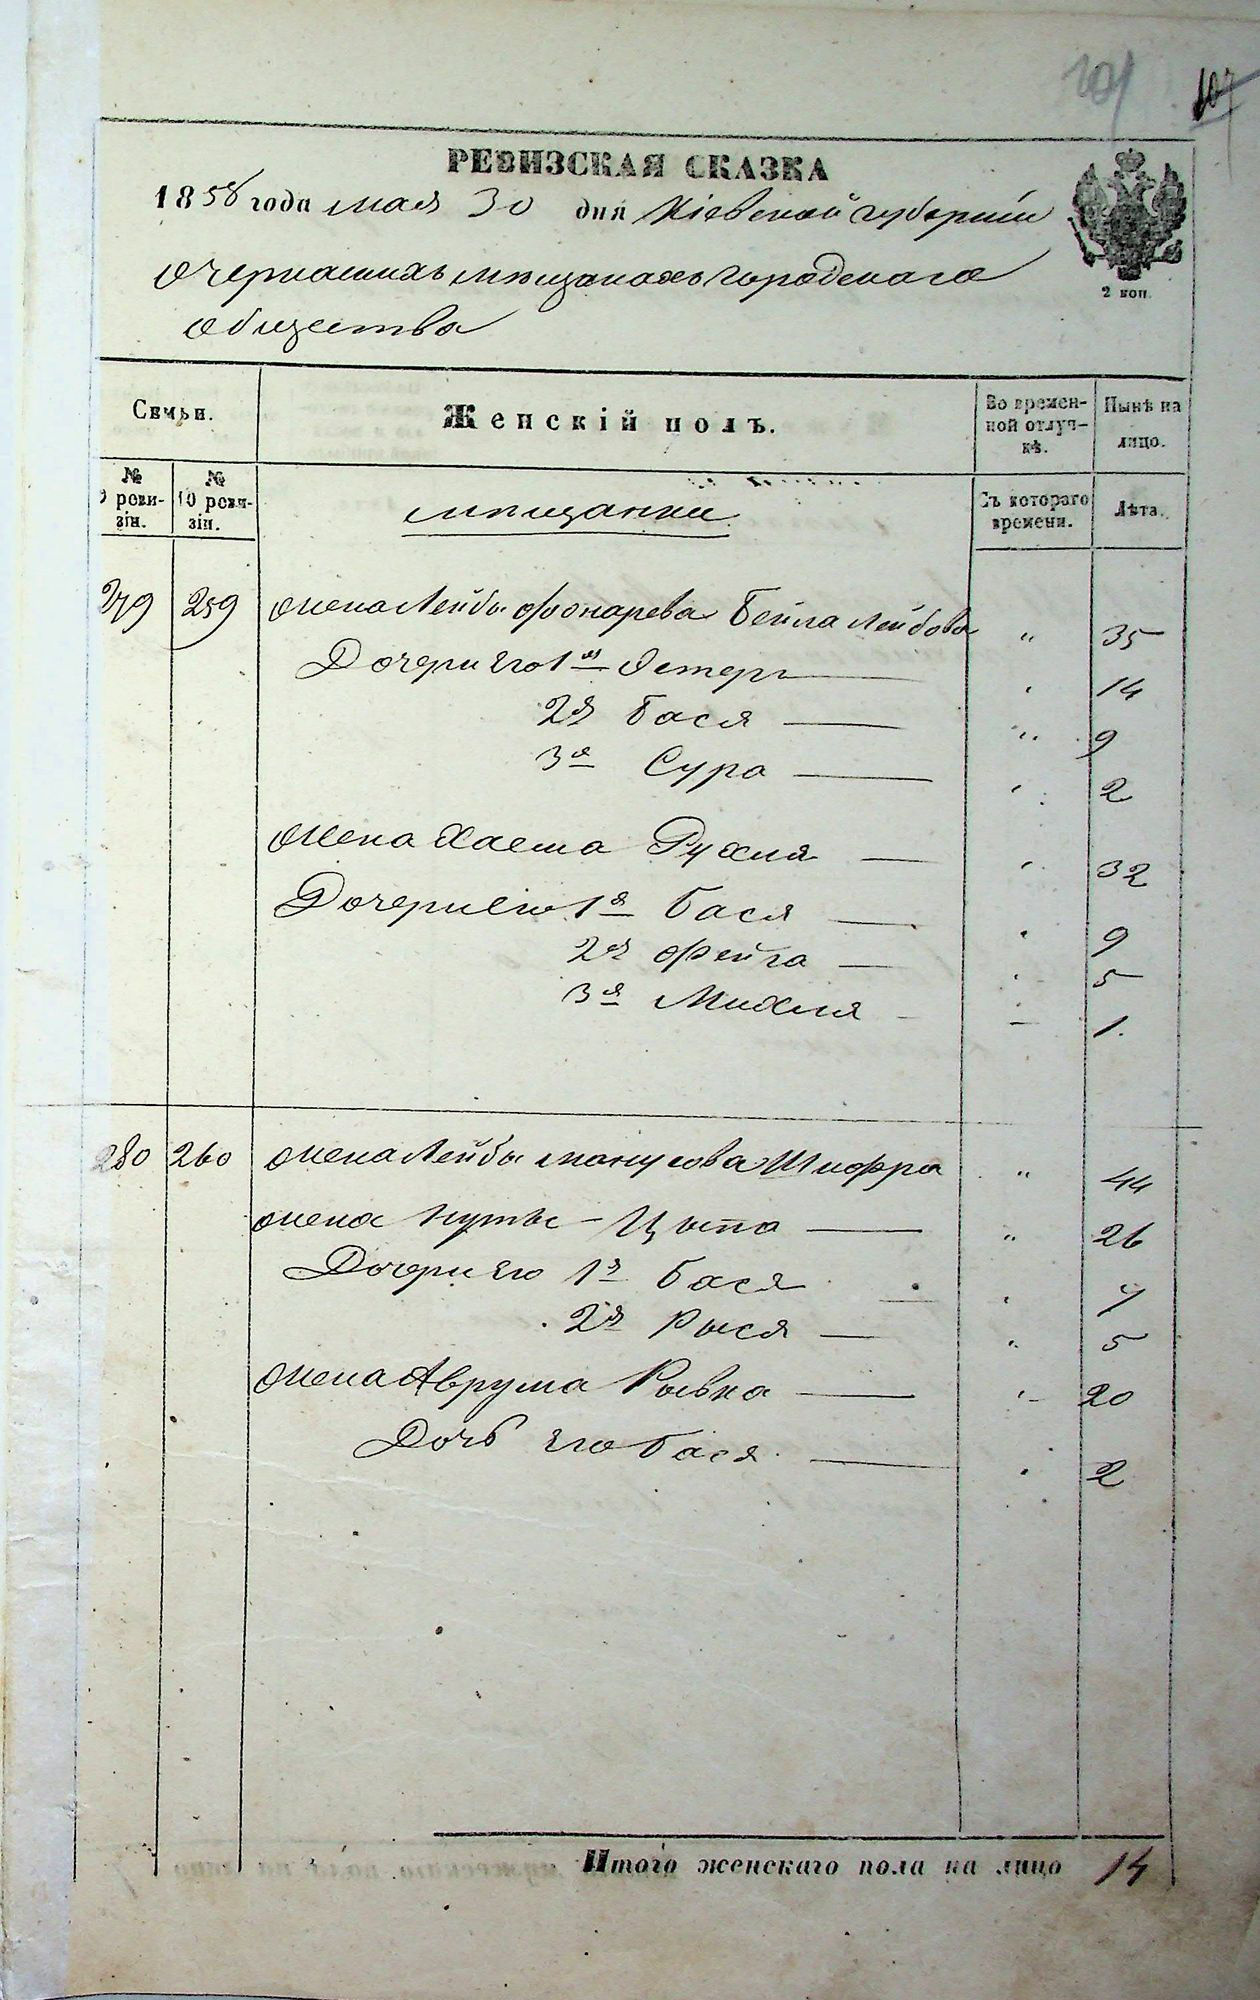 107
РЕВИЗСКАЯ СКАЗКА
1858 года мая 30 дня Кіевской губерніи
о черкаскихъ мѣщанахъ городскаго
общества
2 коп.
Семьи.
Женскій полъ.
Во времен-
ной отлуч-
кѣ.
Нынѣ на
лицо.
№
9 реви-
зіи.
№
10 реви-
зіи.
мѣщанки
Съ котораго
времени.
Лѣта.
279 259 жена Лейбы Фонарева Бейла Лейбова " 35
Дочери его 1я Эстеръ 14
2я Бася " 9
3я Сура 2
жена Хаема Рухля 32
Дочери его 1я Бася 9
2я Фейга 5
3я Михля — 1.
280 260 жена Лейбы Манусова Шифра " 44
жена Нуты – Цыпа " 26
Дочери его 1я Бася 7
2я Рыся 5
жена Аврума Рывка 20
Дочь его Бася 2
Итого женскаго пола на лицо 14